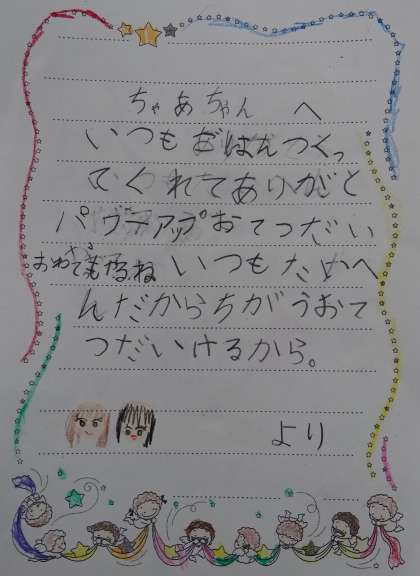 ちゃあちゃん へ
いつもごはんつくっ
てくれてありがと
パヴアアップおてつだい
おわってもやるね いつもたいへ
んだからちがうおて
つだいけるから。
より